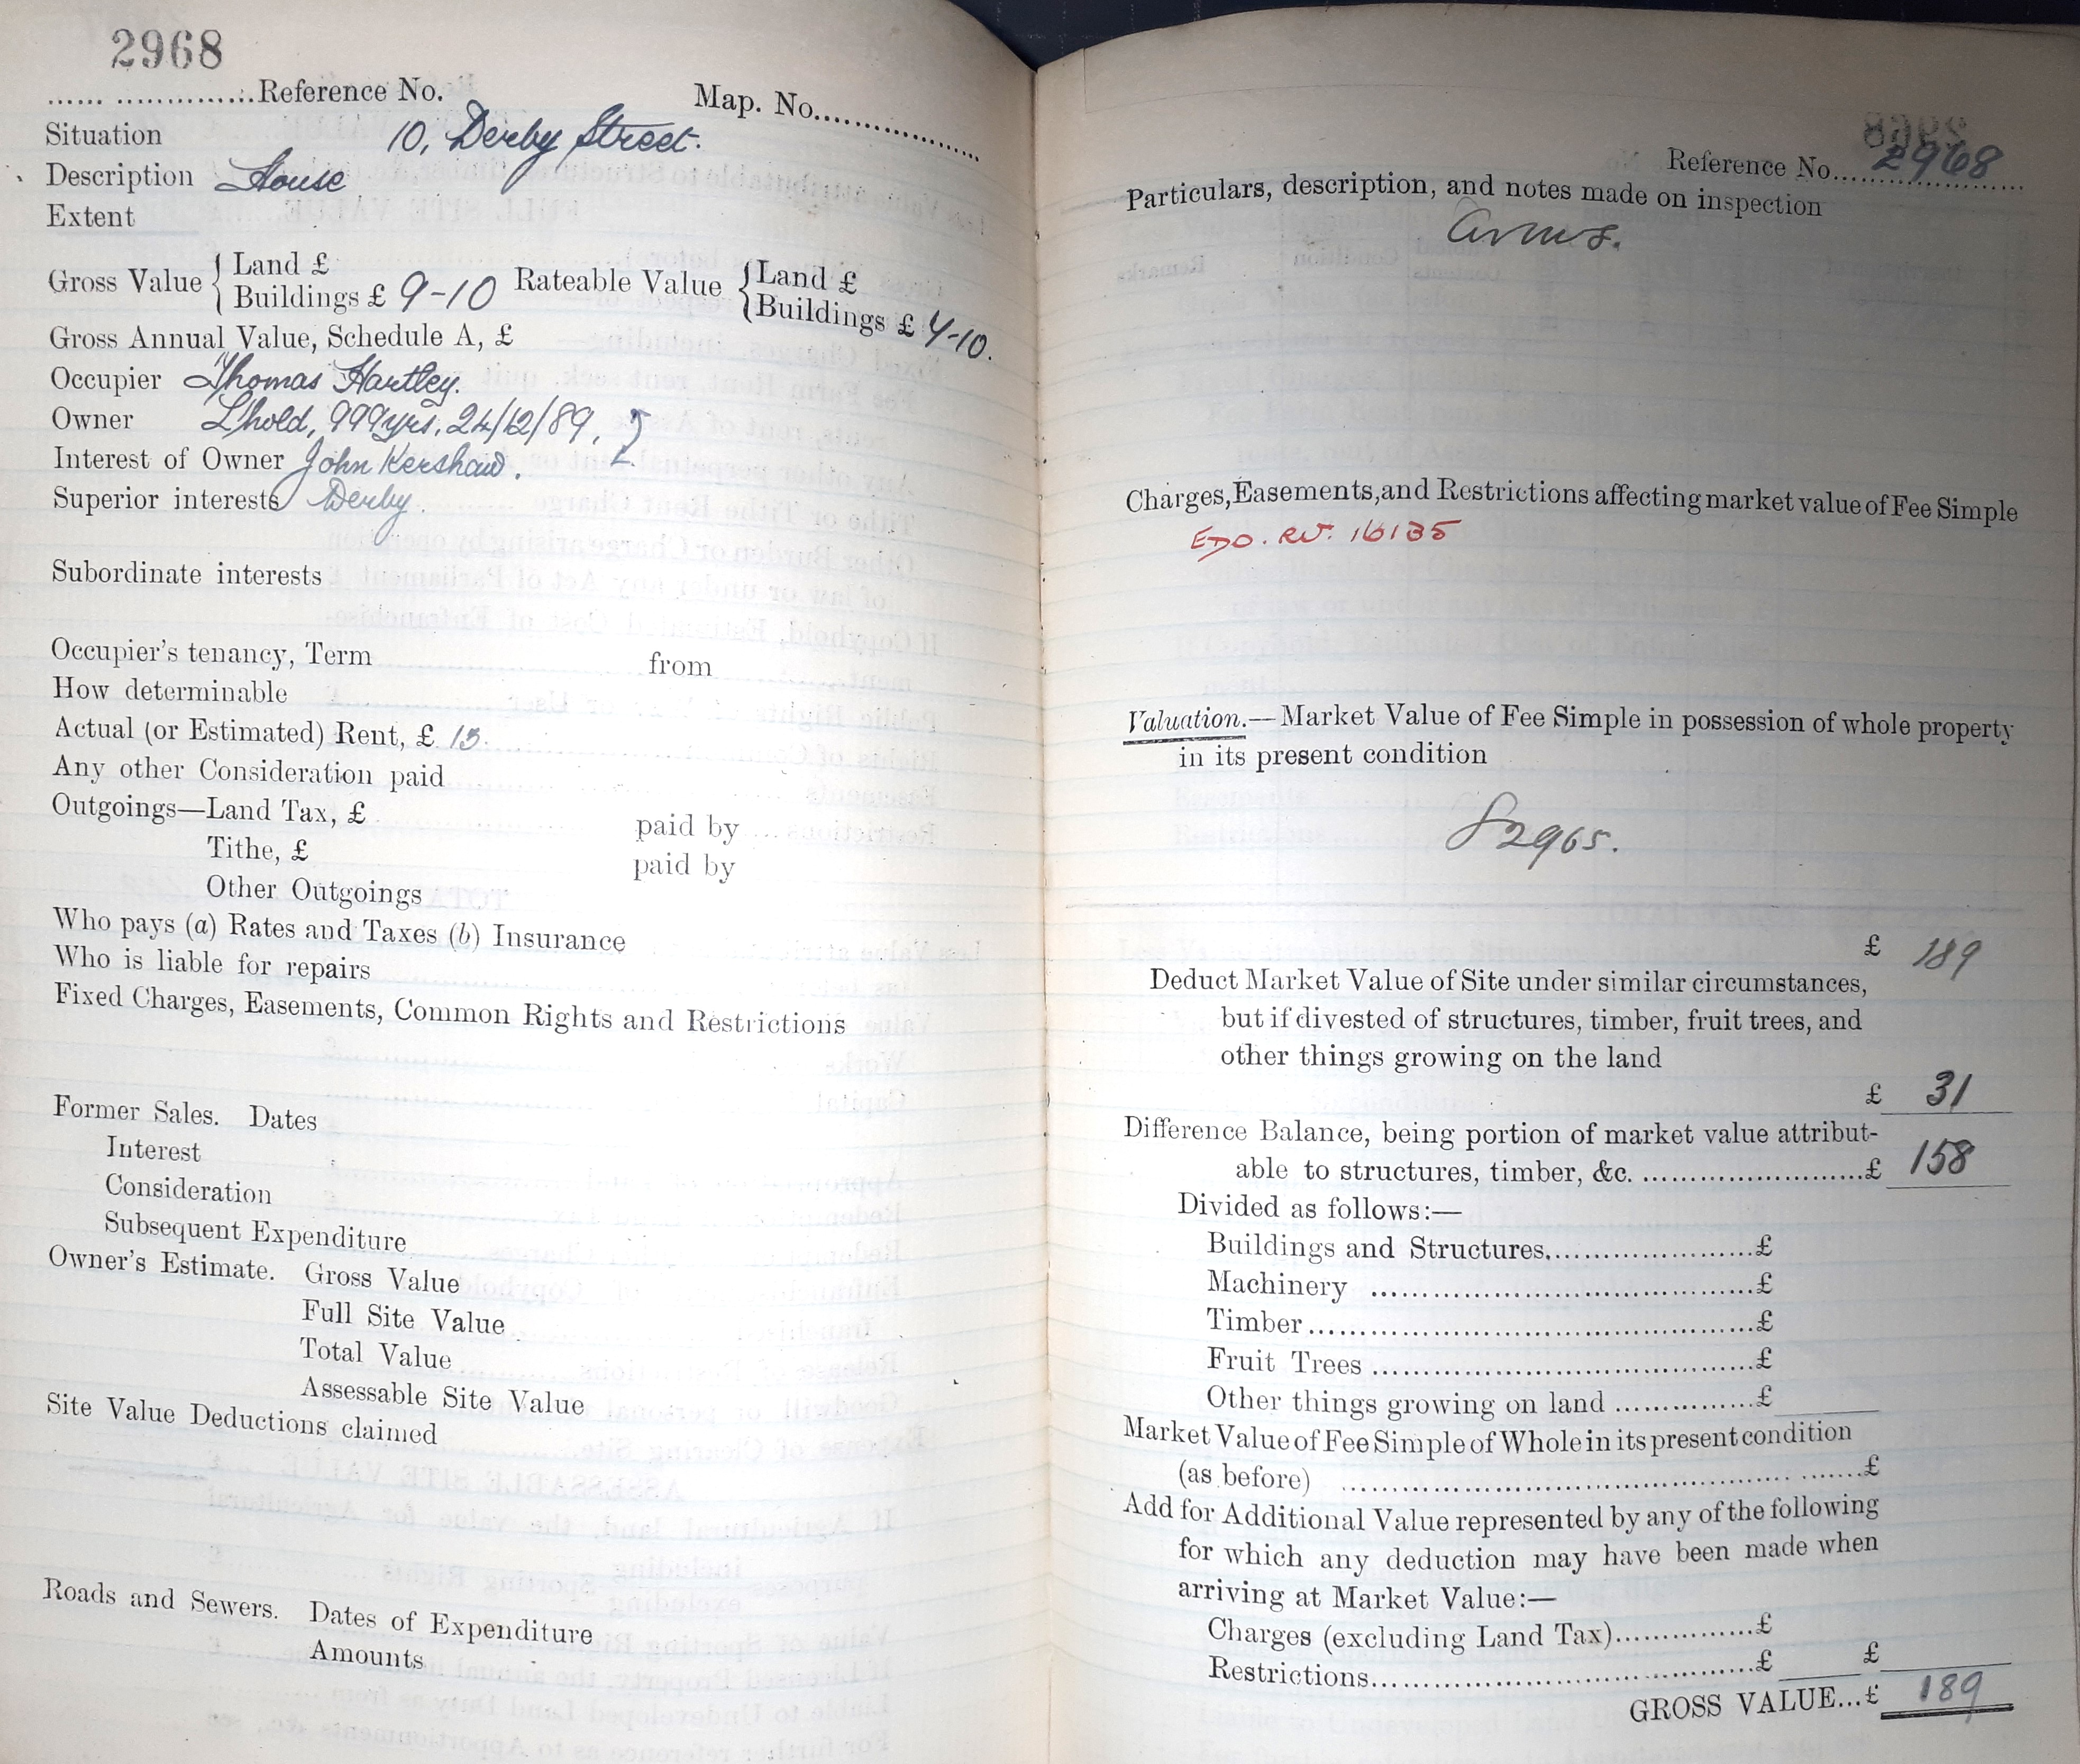 2968
Reference No. Map. No.
Situation 10, Derby Street.
Description House
Extent
Gross Value { Land £ Rateable Value { Land £
Buildings £ 9-10 Buildings £ 7-10.
Gross Annual Value, Schedule A, £
Occupier Thomas Hartley.
Owner L'hold, 999yrs, 24/12/89,
Interest of Owner John Kershaw.
Superior interests Derby.
Subordinate interests
Occupier's tenancy, Term from
How determinable
Actual (or Estimated) Rent, £ 13.
Any other Consideration paid
Outgoings—Land Tax, £ paid by
Tithe, £ paid by
Other Outgoings
Who pays (a) Rates and Taxes (b) Insurance
Who is liable for repairs
Fixed Charges, Easements, Common Rights and Restrictions
Former Sales. Dates
Interest
Consideration
Subsequent Expenditure
Owner's Estimate. Gross Value
Full Site Value
Total Value
Assessable Site Value
Site Value Deductions claimed
Roads and Sewers. Dates of Expenditure
Amounts
Reference No. 2968
Particulars, description, and notes made on inspection
Charges, Easements, and Restrictions affecting market value of Fee Simple
16135
Valuation.—Market Value of Fee Simple in possession of whole property
in its present condition
2965.
£ 189
Deduct Market Value of Site under similar circumstances,
but if divested of structures, timber, fruit trees, and
other things growing on the land
£ 31
Difference Balance, being portion of market value attribut-
able to structures, timber, &c. £ 158
Divided as follows:—
Buildings and Structures. £
Machinery £
Timber £
Fruit Trees £
Other things growing on land £
Market Value of Fee Simple of Whole in its present condition
(as before) £
Add for Additional Value represented by any of the following
for which any deduction may have been made when
arriving at Market Value:—
Charges (excluding Land Tax) £
Restrictions £ £
GROSS VALUE...£ 189